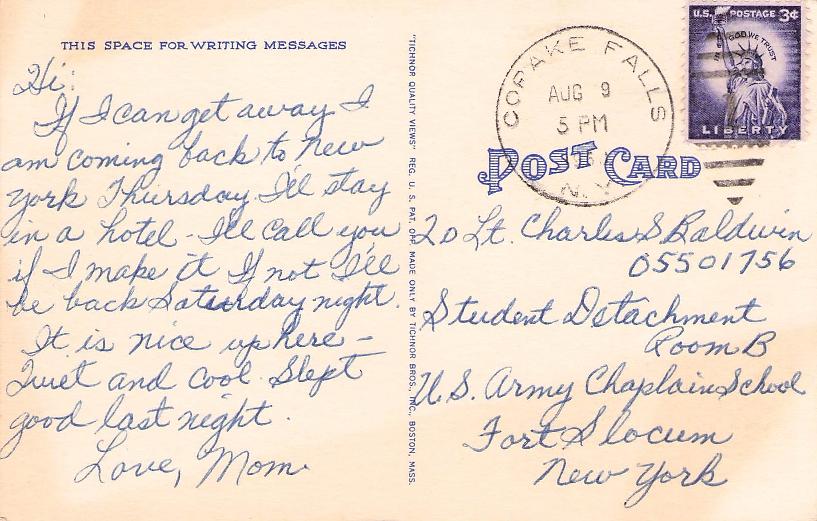 THIS SPACE FOR WRITING MESSAGES
Hi:
If I can get away I
am coming back to New
York Thursday I'll stay
in a hotel - I'll call you
if I make it If not I'll
be back Saturday night.
It is nice up here -
Quiet and cool Slept
good last night.
Love, Mom
"TICHNOR QUALITY VIEWS" REG. U. S. PAT. OFF. MADE ONLY BY TICHNOR BROS., INC., BOSTON, MASS.
U.S. POSTAGE 3¢
IN GOD WE TRUST
LIBERTY
COPAKE FALLS
AUG 9
5 PM
N.Y.
POST CARD
2D Lt. Charles S Baldwin
05501756
Student Detachment
Room B
U.S. Army Chaplain School
Fort Slocum
New York